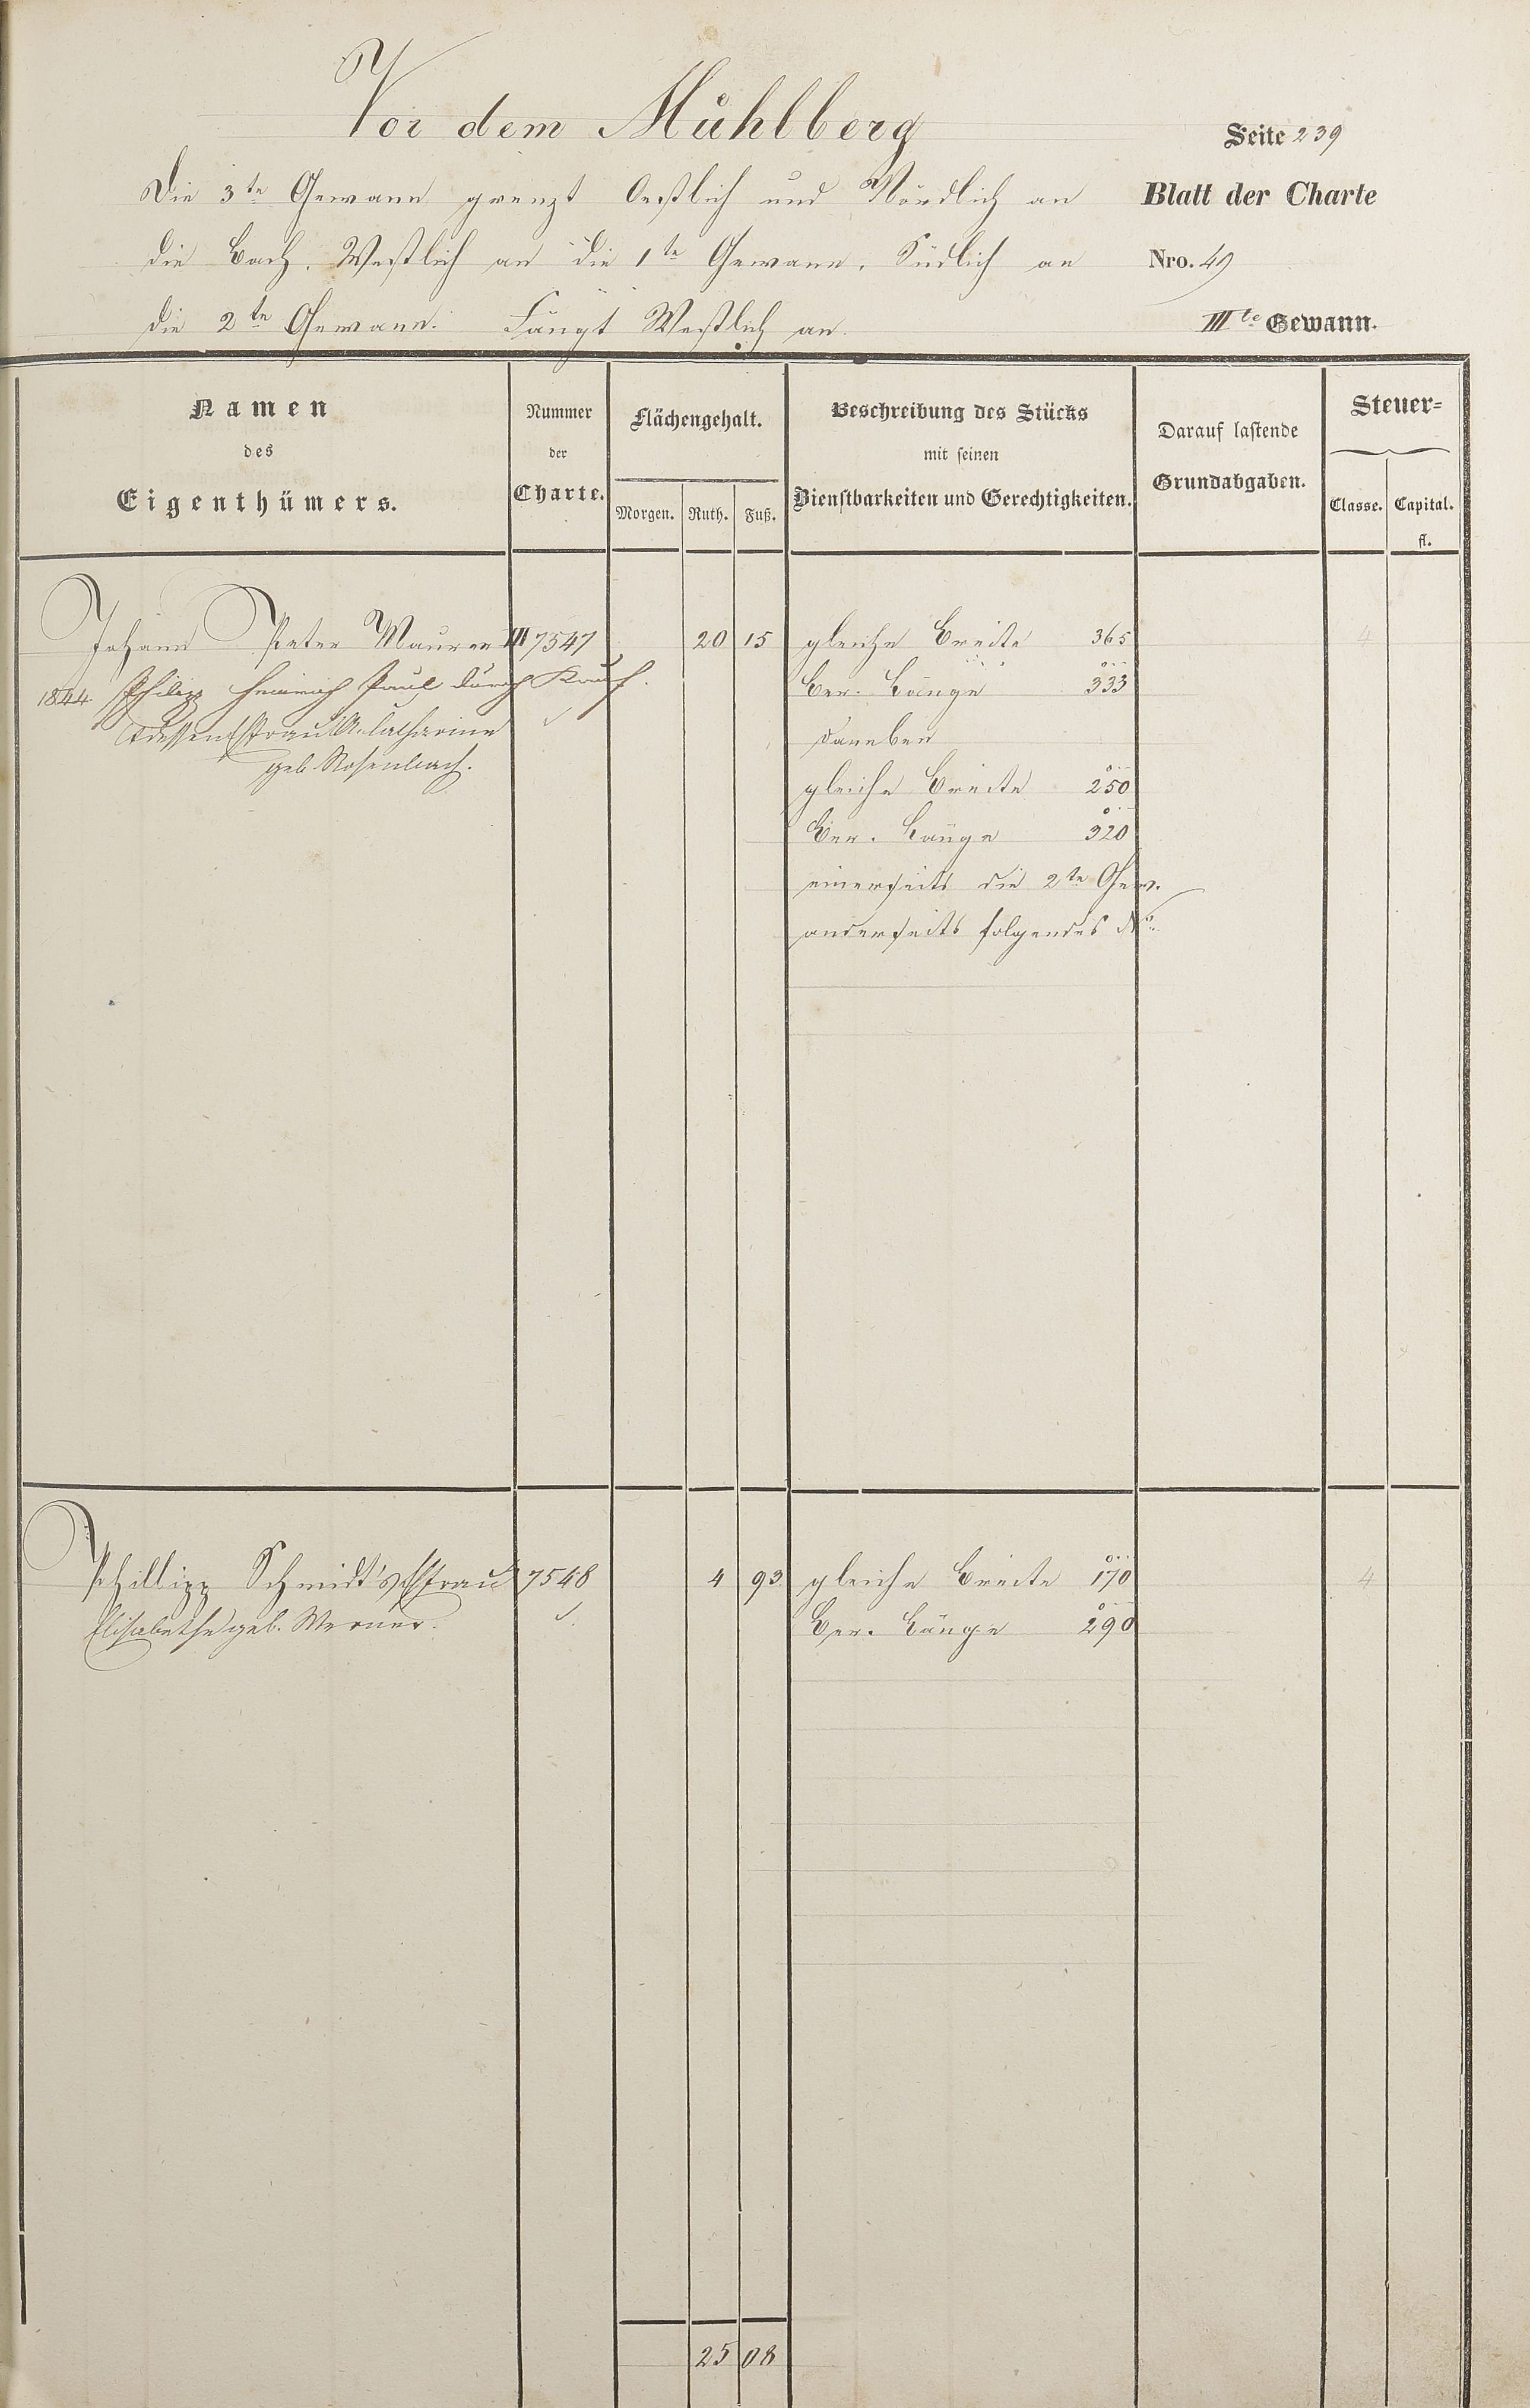 Vor dem Mühlberg
Seite 239
Die 3te Gewann grenzt Oestlich und Nördlich an
Blatt der Charte
die Bach, Westlich an die 1te Gewann, Südlich an
Nro. 49
die 2te Gewann. Fängt Westlich an.
IIIte Gewann.
Namen
des
Eigenthümers.
Nummer
der
Charte.
Flächengehalt.
Morgen. Ruth. Fuß.
Beschreibung des Stücks
mit seinen
Dienstbarkeiten und Gerechtigkeiten.
Darauf lastende
Grundabgaben.
Steuer=
Classe. Capital.
fl.
Johann Peter Maurer III 7547 20 15 gleiche Breite 365 4
1844. Philipp Heinrich Paul durch Kauf.
ber. Länge 333
dessen Ehefrau A. Catharine
daneben
geb. Rosenbach.
gleiche Breite 250
ber. Länge 320
einerseits die 2te Gew.
anderseits folgendes No.
Phillipp Schmidt's Ehefrau 7548 4 93 gleiche Breite 170 4
Elisabethe geb. Werner.
ber. Länge 290
25 08